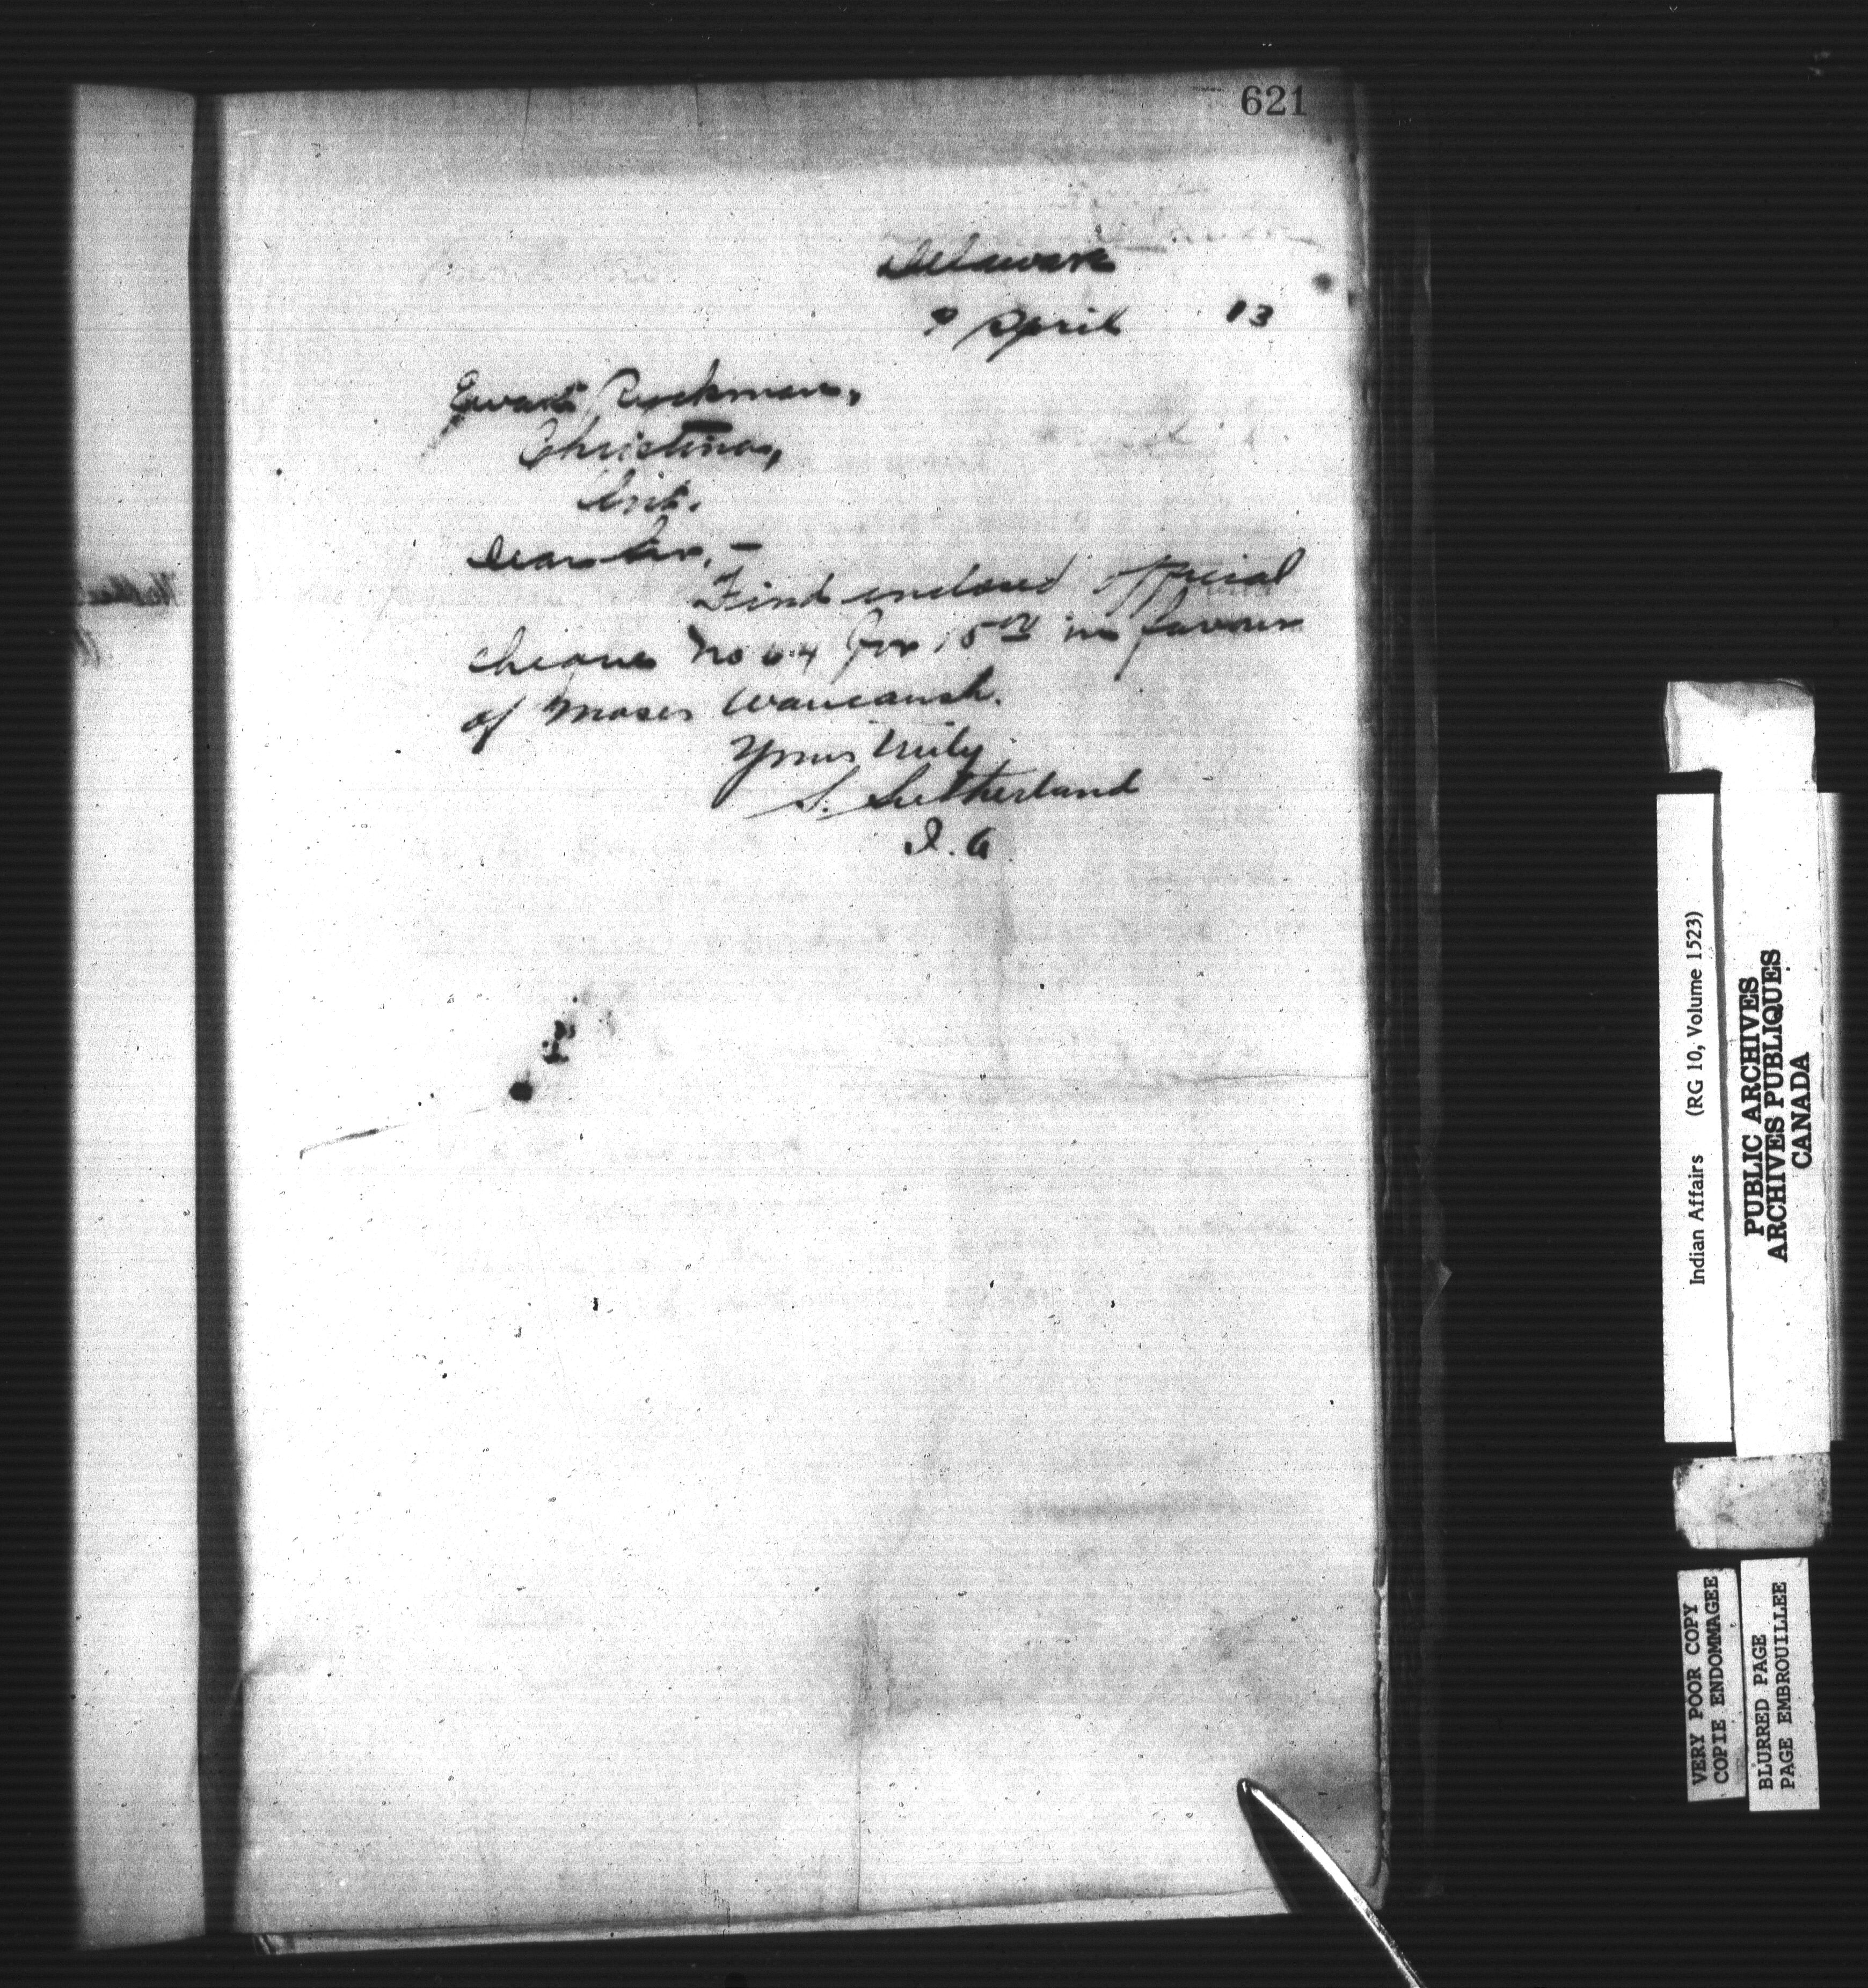 621
Delaware
9 April 13
Ewart Ruckman,
Christina,
Ont.
Dear Sir, –
Find enclosed official
cheque No 64 for 15 00 in favour
of Moses Waucaush.
Yours truly
S. Sutherland
I. A.
Indian Affairs (RG 10, Volume 1523)
PUBLIC ARCHIVES
ARCHIVES PUBLIQUES
CANADA
VERY POOR COPY
COPIE ENDOMMAGEE
BLURRED PAGE
PAGE EMBROUILLEE